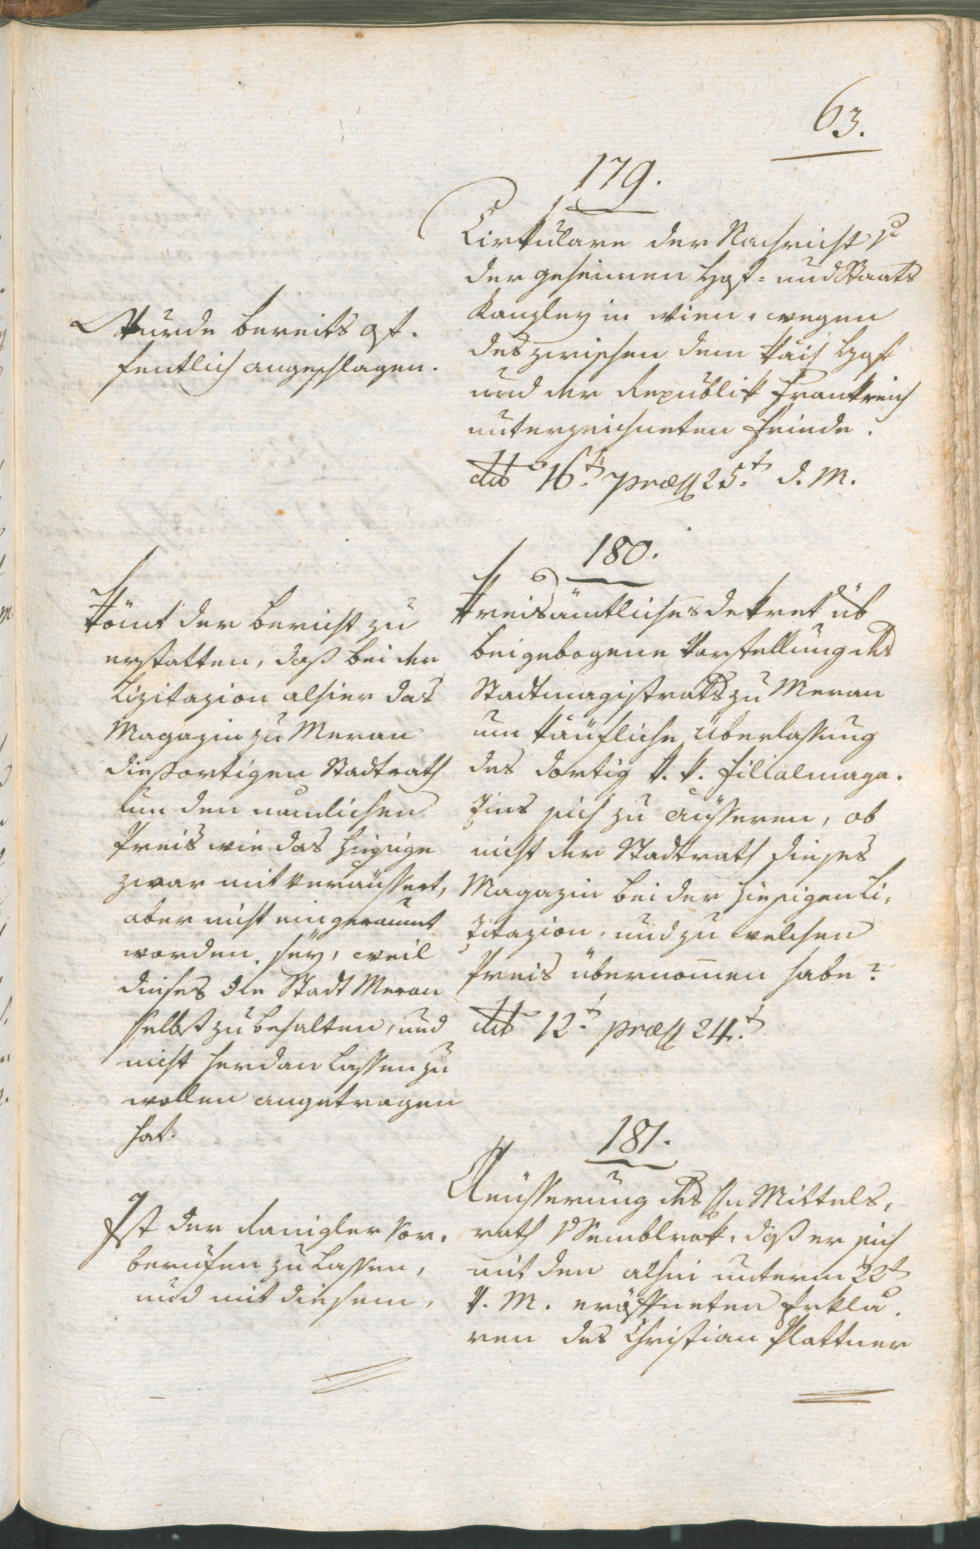 63.
179.
Cirkulare der Nachricht v
der geheimen Hof- und Staats
Kanzley in Wien, wegen
des zwischen dem Kais Hof
und der Republik Frankreich
unterzeichneten Friede.
ddo 16t praes 25t d. M.
Wurde bereits öf-
fentlich angeschlagen.
180.
Kreisämtliches Dekret üb
beigebogene Vorstellung des
Stadtmagistrats zu Meran
um käufliche Überlassung
des dortig k. k. Filialmaga-
zins sich zu äussern, ob
nicht der Stadtrath dieses
Magazin bei der hiesigen Li-
zitazion, und zu welchen
Preis übernommen habe?
ddo 12t praes 24t
Kömt der Bericht zu
erstatten, daß bei der
Lizitazion alhier das
Magazin zu Meran
diesortigen Stadtrath
um den nemlichen
Preis wie das hiesige
zwar mit veräussert,
aber nicht eingeraumt
worden sey, weil
dieses die Stadt Meran
selbst zu behalten, und
nicht herdan lassen zu
wollen angetragen
hat.
181.
Aeusserung des Hn Mittels-
rath v Semblrok, daß er sich
mit den alhie unterm 22t
v. M. eröffneten Erklä-
ren des Christian Plattner
Ist der Ranigler vor-
berufen zu lassen,
und mit diesem,